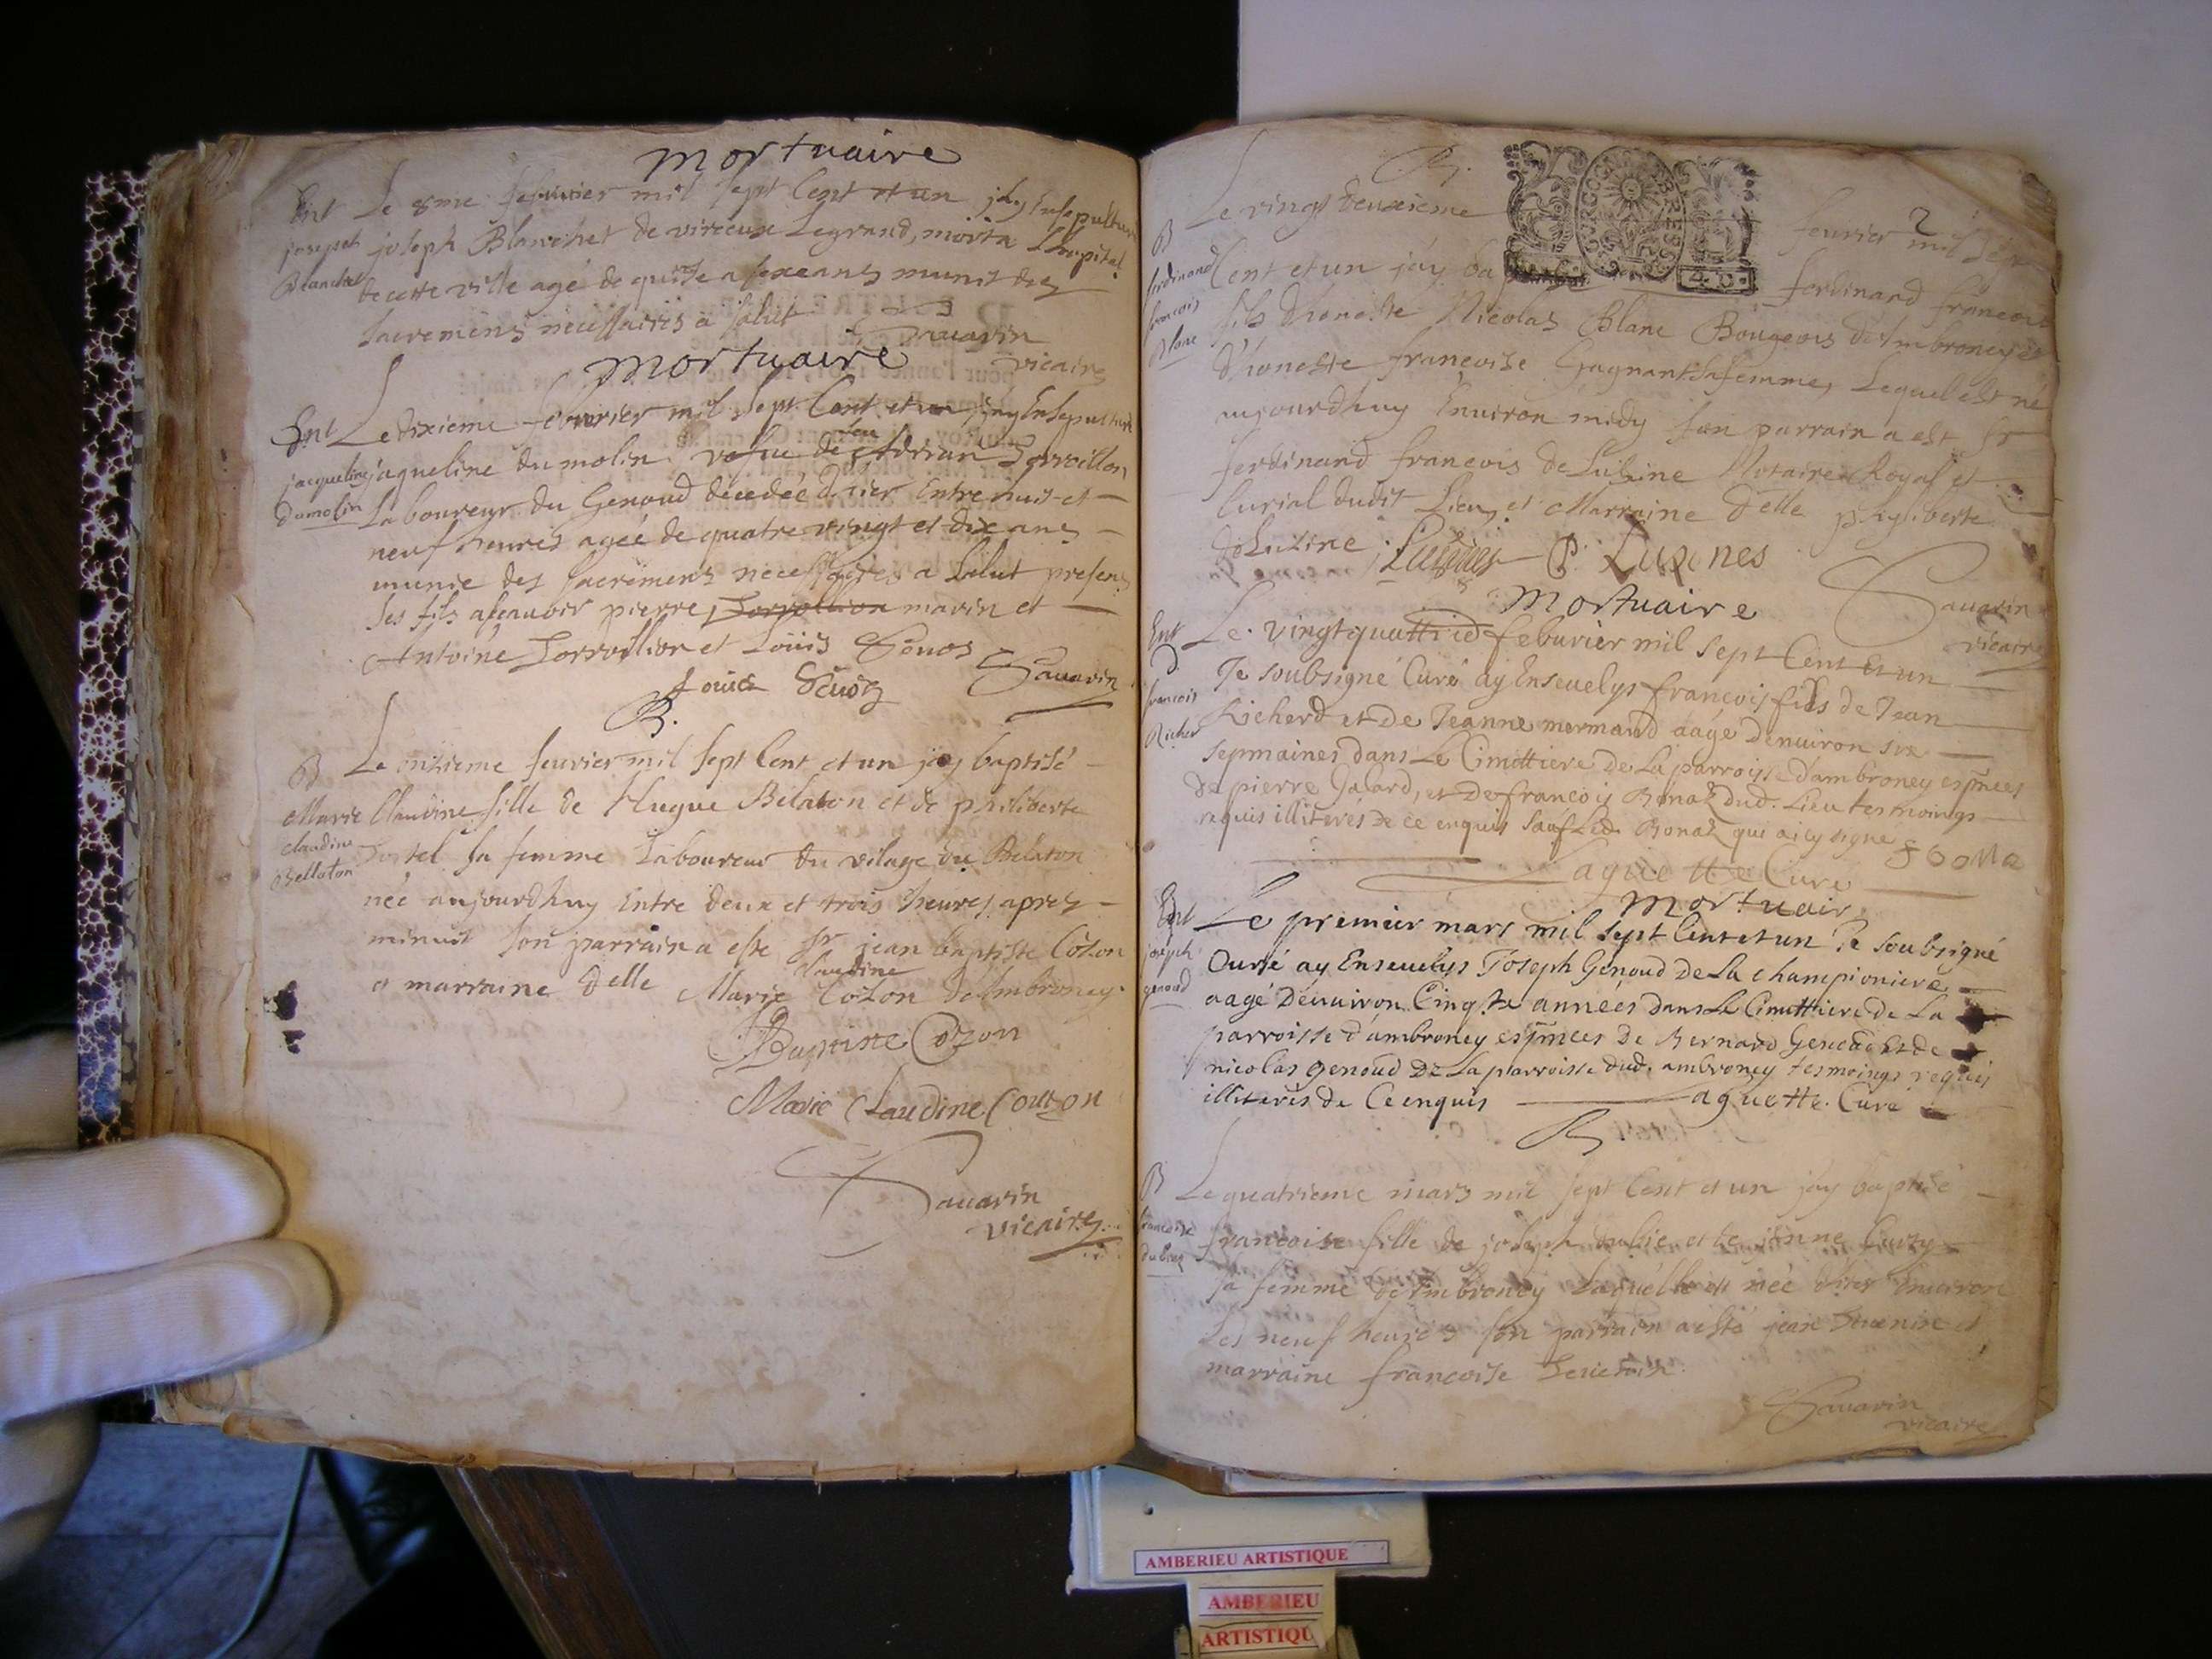 mortuaire
Ent Le 8me febuvier mil sept Cent et un jay Ensepulturé
joseph joseph Blanchet de virieux Legrand, mort a Lhopital
Blanchet de cette ville agé de quise a sexeans munit des
sacremens necessaires a salut
Savarin
vicaire
mortuaire
Ent Le dixieme febvrier mil sept Cent et un jay Ensepulturé
feu
jacqueline jaqueline dumolin vefue de Adrian Lorroillon
dumolin Laboureur du Genoud décedée d'hier Entre huit et
neuf heures ageé de quatre vingt et dix ans
munie des sacremens necessaires a salut presens
ses fils ascauoir pierre Lorvollion marin et
Antoine Lorvollion et Louis
Louis
Savarin
B.
B Le onzieme feuvrier mil sept Cent et un jay baptisé
Marie Claudine fille de Hugue Bélaton et de philiberte
claudine sa femme Laboureur du vilage du Belaton
Bellaton
née aujourdhuy Entre deux et trois heures apres
minuit son parrain a esté Sr jean baptiste Cozon
Claudine
et marraine delle Marie Cozon d'Ambroney
JBaptiste Cozon
Marie Claudine Couzon
Savarin
vicaire
B.
2
GEN. BOURGOG. BRESSE
4.C.
B Le vingt deuxieme feuvrier mil sept
ferdinand Cent et un jay baptisé ferdinand francois
francois fils d'honeste Nicolas Blanc Bougeois d'Ambroney et
Blanc d'honeste francoise Gagnant sa femme, Lequel est né
aujourdhuy Environ midy son parrain a esté Sr
ferdinand francois de Luisine Notaire Royal et
Curial dudit Lieu, et Marraine delle philiberte
de Luisine
P. Lusines
Savarin
vicaire
Mortuaire
Ent Le vingtquattrie feburier mil sept Cent et un
Je soubsigné Curé ay Enseuelys francois fils de Jean
francois Richerd et de Jeanne mermand aagé denuiron six
Richer sepmaines dans Le Cimettiere de La parroisse dambroney espñces
de pierre Jalard, et de francois Bonaz dud. Lieu tesmoings
requis illiterés de ce enquis sauf Led. Bonaz qui a icy signe
aguette Cure
mortuaire
Ent Le premier mars mil sept Cent et un Je soubsigné
joseph Curé ay Enseuelys Joseph Genoud de La championiere
genoud aagé Denuiron Cinqte années dans Le Cimettiere de La
parroisse d'ambroney espñces de Bernard Genoud Et de
nicolas genoud de La parroisse dud. ambroney tesmoings requis
illiterés de Ce enquis aguette. Cure
B.
B Le quatrieme mars mil sept Cent et un jay baptisé
francoise francoise fille de joseph dubie et de jeanne
sa femme d'Ambroney Laquelle est née d'hier Environ
Les neuf heures son parrain a esté jean et
marraine francoise
Savarin
vicaire
AMBERIEU ARTISTIQUE
AMBERIEU
ARTISTIQU